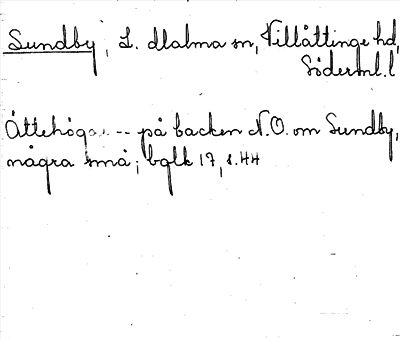 Sundby, L. Malma sn, Villåttinge hd,
Söderml. l
Ättehögar -- på backen N.O. om Sundby,
några små; bglk 17, s. 44